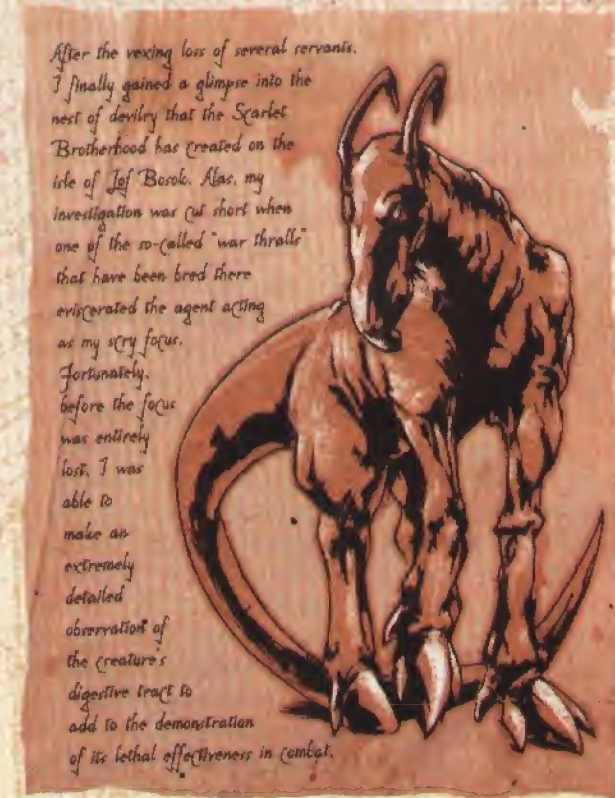 After the vexing loss of several servants,
I finally gained a glimpse into the
nest of devilry that the Scarlet
Brotherhood has created on the
isle of Jof Bosok. Alas, my
investigation was cut short when
one of the so-called "war thralls"
that have been bred there
eviscerated the agent acting
as my scry focus.
Fortunately,
before the focus
was entirely
lost, I was
able to
make an
extremely
detailed
observation of
the creature's
digestive tract to
add to the demonstration
of its lethal effectiveness in combat.